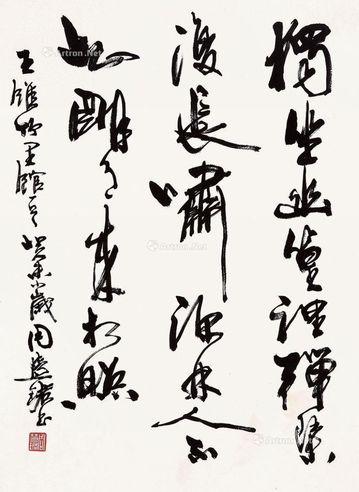 獨坐幽篁裡彈琴
復長嘯深林人不
知明月来相照
王維竹里館 癸未歲周慧珺书
Artron.Net